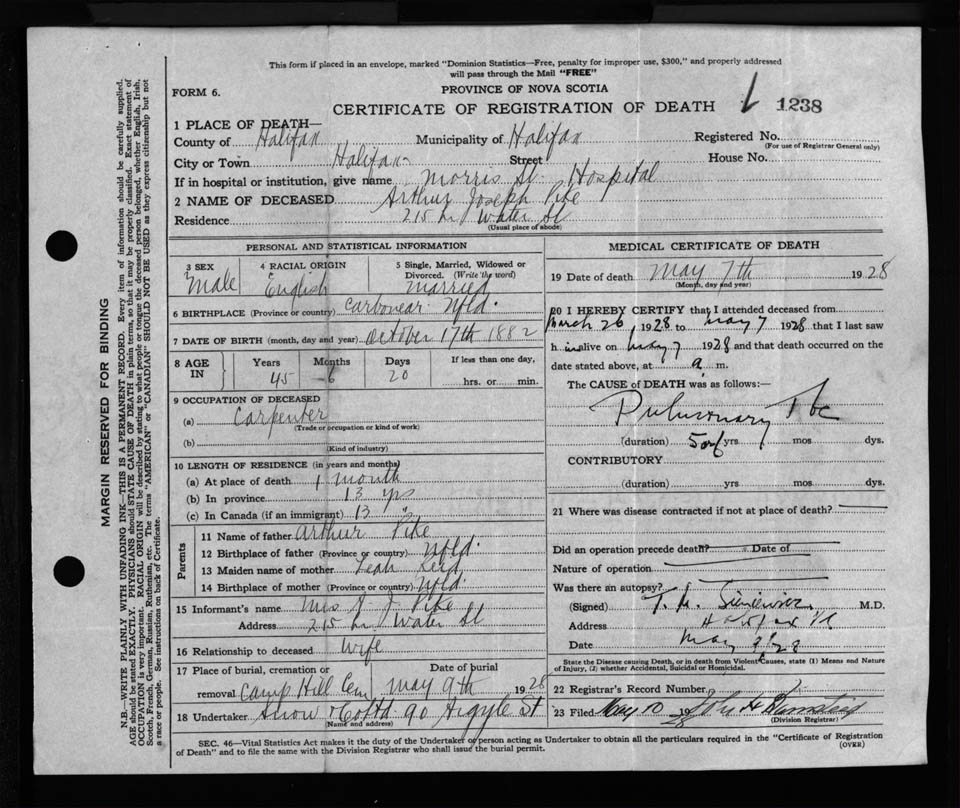 This form if placed in an envelope, marked "Dominion Statistics—Free, penalty for improper use, $300," and properly addressed
will pass through the Mail "FREE"
FORM 6.
PROVINCE OF NOVA SCOTIA
CERTIFICATE OF REGISTRATION OF DEATH 1238
1 PLACE OF DEATH—
County of Halifax Municipality of Halifax Registered No.
(For use of Registrar General only)
City or Town Halifax Street House No.
If in hospital or institution, give name Morris St. Hospital
2 NAME OF DECEASED Arthur Joseph Pike
Residence 215 Water St
(Usual place of abode)
PERSONAL AND STATISTICAL INFORMATION
3 SEX Male
4 RACIAL ORIGIN English
5 Single, Married, Widowed or
Divorced. (Write the word)
Married
6 BIRTHPLACE (Province or country) Carbonear Nfld.
7 DATE OF BIRTH (month, day and year) October 17th 1882
8 AGE IN Years 45 Months 6 Days 20 If less than one day,
hrs. or min.
9 OCCUPATION OF DECEASED
(a) Carpenter
(Trade or occupation or kind of work)
(b)
(Kind of industry)
10 LENGTH OF RESIDENCE (in years and months)
(a) At place of death 1 month
(b) In province 13 yrs
(c) In Canada (if an immigrant) 13 "
Parents
11 Name of father Arthur Pike
12 Birthplace of father (Province or country) Nfld.
13 Maiden name of mother Leah
14 Birthplace of mother (Province or country) Nfld.
15 Informant's name Mrs A J Pike
Address 215 Water St
16 Relationship to deceased Wife
17 Place of burial, cremation or Date of burial
removal Camp Hill Cem. May 9th 1928
18 Undertaker Snow & Co Ltd 90 Argyle St
(Name and address)
MEDICAL CERTIFICATE OF DEATH
19 Date of death May 7th 1928
(Month, day and year)
20 I HEREBY CERTIFY that I attended deceased from
March 26, 1928 to May 7 1928 that I last saw
h im alive on May 7 1928 and that death occurred on the
date stated above, at a. m.
The CAUSE of DEATH was as follows:—
Pulmonary Tbc
(duration) 5 yrs mos dys.
CONTRIBUTORY
(duration) yrs mos dys.
21 Where was disease contracted if not at place of death?
Did an operation precede death? Date of
Nature of operation
Was there an autopsy?
(Signed) T. M. Sieniewicz M.D.
Address Halifax NS
Date May 9 28
State the Disease causing Death, or in death from Violent Causes, state (1) Means and Nature
of Injury, (2) whether Accidental, Suicidal or Homicidal.
22 Registrar's Record Number
23 Filed May 10 1928
(Division Registrar)
SEC. 46—Vital Statistics Act makes it the duty of the Undertaker or person acting as Undertaker to obtain all the particulars required in the "Certificate of Registration
of Death" and to file the same with the Division Registrar who shall issue the burial permit.
(OVER)
MARGIN RESERVED FOR BINDING
N.B.—WRITE PLAINLY WITH UNFADING INK—THIS IS A PERMANENT RECORD. Every item of information should be carefully supplied.
AGE should be stated EXACTLY. PHYSICIANS should STATE CAUSE OF DEATH in plain terms, so that it may be properly classified. Exact statement of
OCCUPATION is very important. RACIAL ORIGIN will be described by stating to what people or tongue the deceased person belonged, whether English, Irish,
Scotch, French, German, Russian, Ruthenian, etc. The terms "AMERICAN" or "CANADIAN" SHOULD NOT BE USED as they express citizenship but not
a race or people. See instructions on back of Certificate.